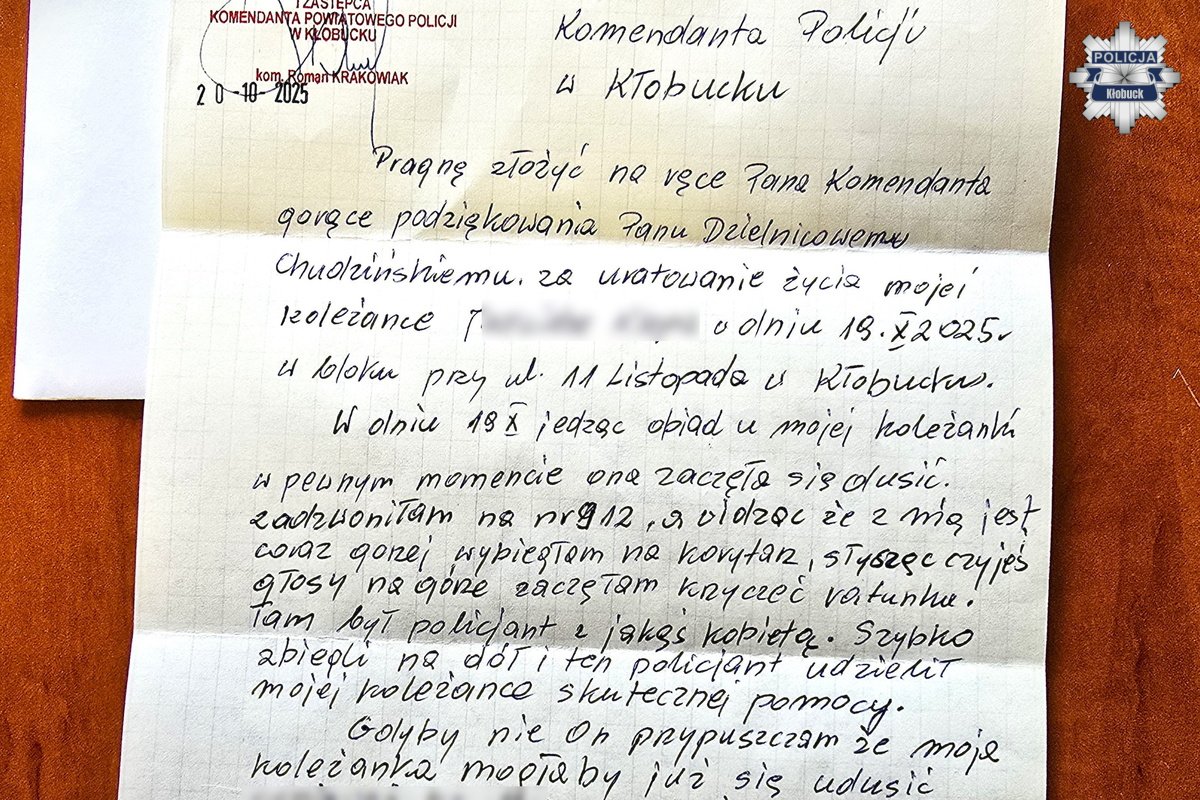 I ZASTĘPCA
KOMENDANTA POWIATOWEGO POLICJI
W KŁOBUCKU
kom. Roman KRAKOWIAK
20-10-2025
Komendanta Policji
w Kłobucku
POLICJA
Kłobuck
Pragnę złożyć na ręce Pana Komendanta
gorące podziękowania Panu Dzielnicowemu
Chudzińskiemu. za uratowanie życia mojej
koleżance J. w dniu 19.X2025r
w bloku przy ul. 11 Listopada w Kłobucku.
W dniu 19X jedząc obiad u mojej koleżanki
w pewnym momencie ona zaczęła się dusić.
zadzwoniłam na nr 912, a widząc że z nią jest
coraz gorzej wybiegłam na korytarz, słysząc czyjeś
głosy na górze zaczęłam krzyczeć ratunku.
Tam był policjant z jakąś kobietą. Szybko
zbiegli na dół i ten policjant udzielił
mojej koleżance skutecznej pomocy.
Gdyby nie On przypuszczam że moja
koleżanka mogłaby już się udusić